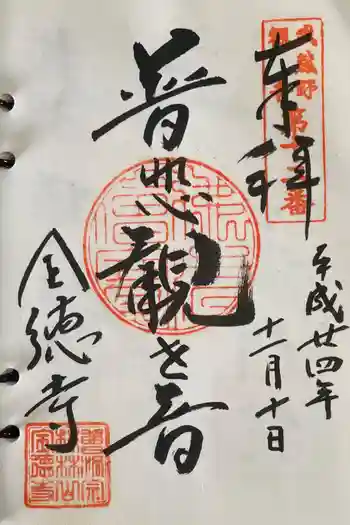 武蔵野
観音
第十二番
奉拝
平成廿四年
十一月十日
普悲観世音
全徳寺